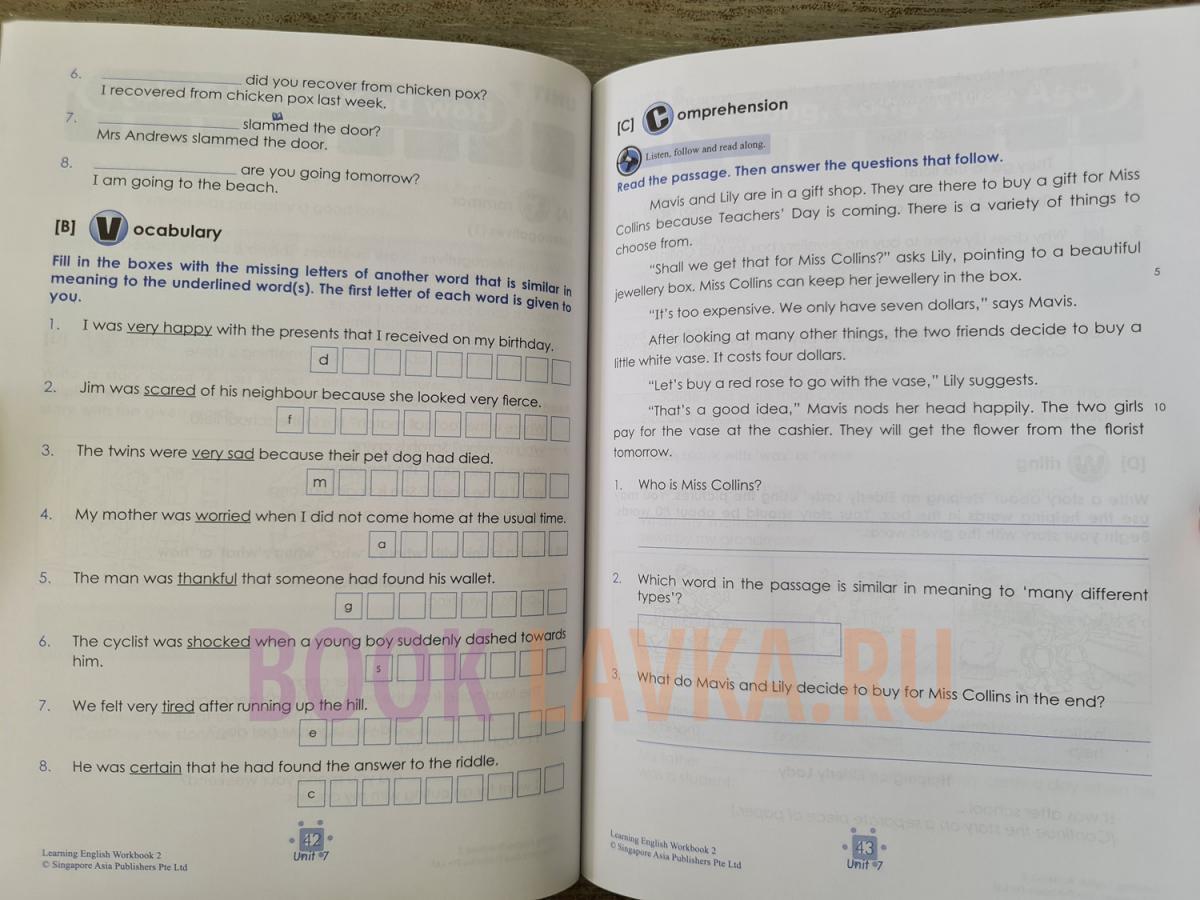 6. ____________ did you recover from chicken pox?
I recovered from chicken pox last week.
7. ____________ slammed the door?
Mrs Andrews slammed the door.
8. ____________ are you going tomorrow?
I am going to the beach.
[B] Vocabulary
Fill in the boxes with the missing letters of another word that is similar in
meaning to the underlined word(s). The first letter of each word is given to
you.
1. I was very happy with the presents that I received on my birthday.
d
2. Jim was scared of his neighbour because she looked very fierce.
f
3. The twins were very sad because their pet dog had died.
m
4. My mother was worried when I did not come home at the usual time.
a
5. The man was thankful that someone had found his wallet.
g
6. The cyclist was shocked when a young boy suddenly dashed towards
him.
s
7. We felt very tired after running up the hill.
e
8. He was certain that he had found the answer to the riddle.
c
42
Unit 7
Learning English Workbook 2
© Singapore Asia Publishers Pte Ltd
[C] Comprehension
Listen, follow and read along.
Read the passage. Then answer the questions that follow.
Mavis and Lily are in a gift shop. They are there to buy a gift for Miss
Collins because Teachers' Day is coming. There is a variety of things to
choose from.
"Shall we get that for Miss Collins?" asks Lily, pointing to a beautiful 5
jewellery box. Miss Collins can keep her jewellery in the box.
"It's too expensive. We only have seven dollars," says Mavis.
After looking at many other things, the two friends decide to buy a
little white vase. It costs four dollars.
"Let's buy a red rose to go with the vase," Lily suggests.
"That's a good idea," Mavis nods her head happily. The two girls 10
pay for the vase at the cashier. They will get the flower from the florist
tomorrow.
1. Who is Miss Collins?
2. Which word in the passage is similar in meaning to 'many different
types'?
3. What do Mavis and Lily decide to buy for Miss Collins in the end?
Learning English Workbook 2
© Singapore Asia Publishers Pte Ltd
43
Unit 7
BOOK LAVKA.RU